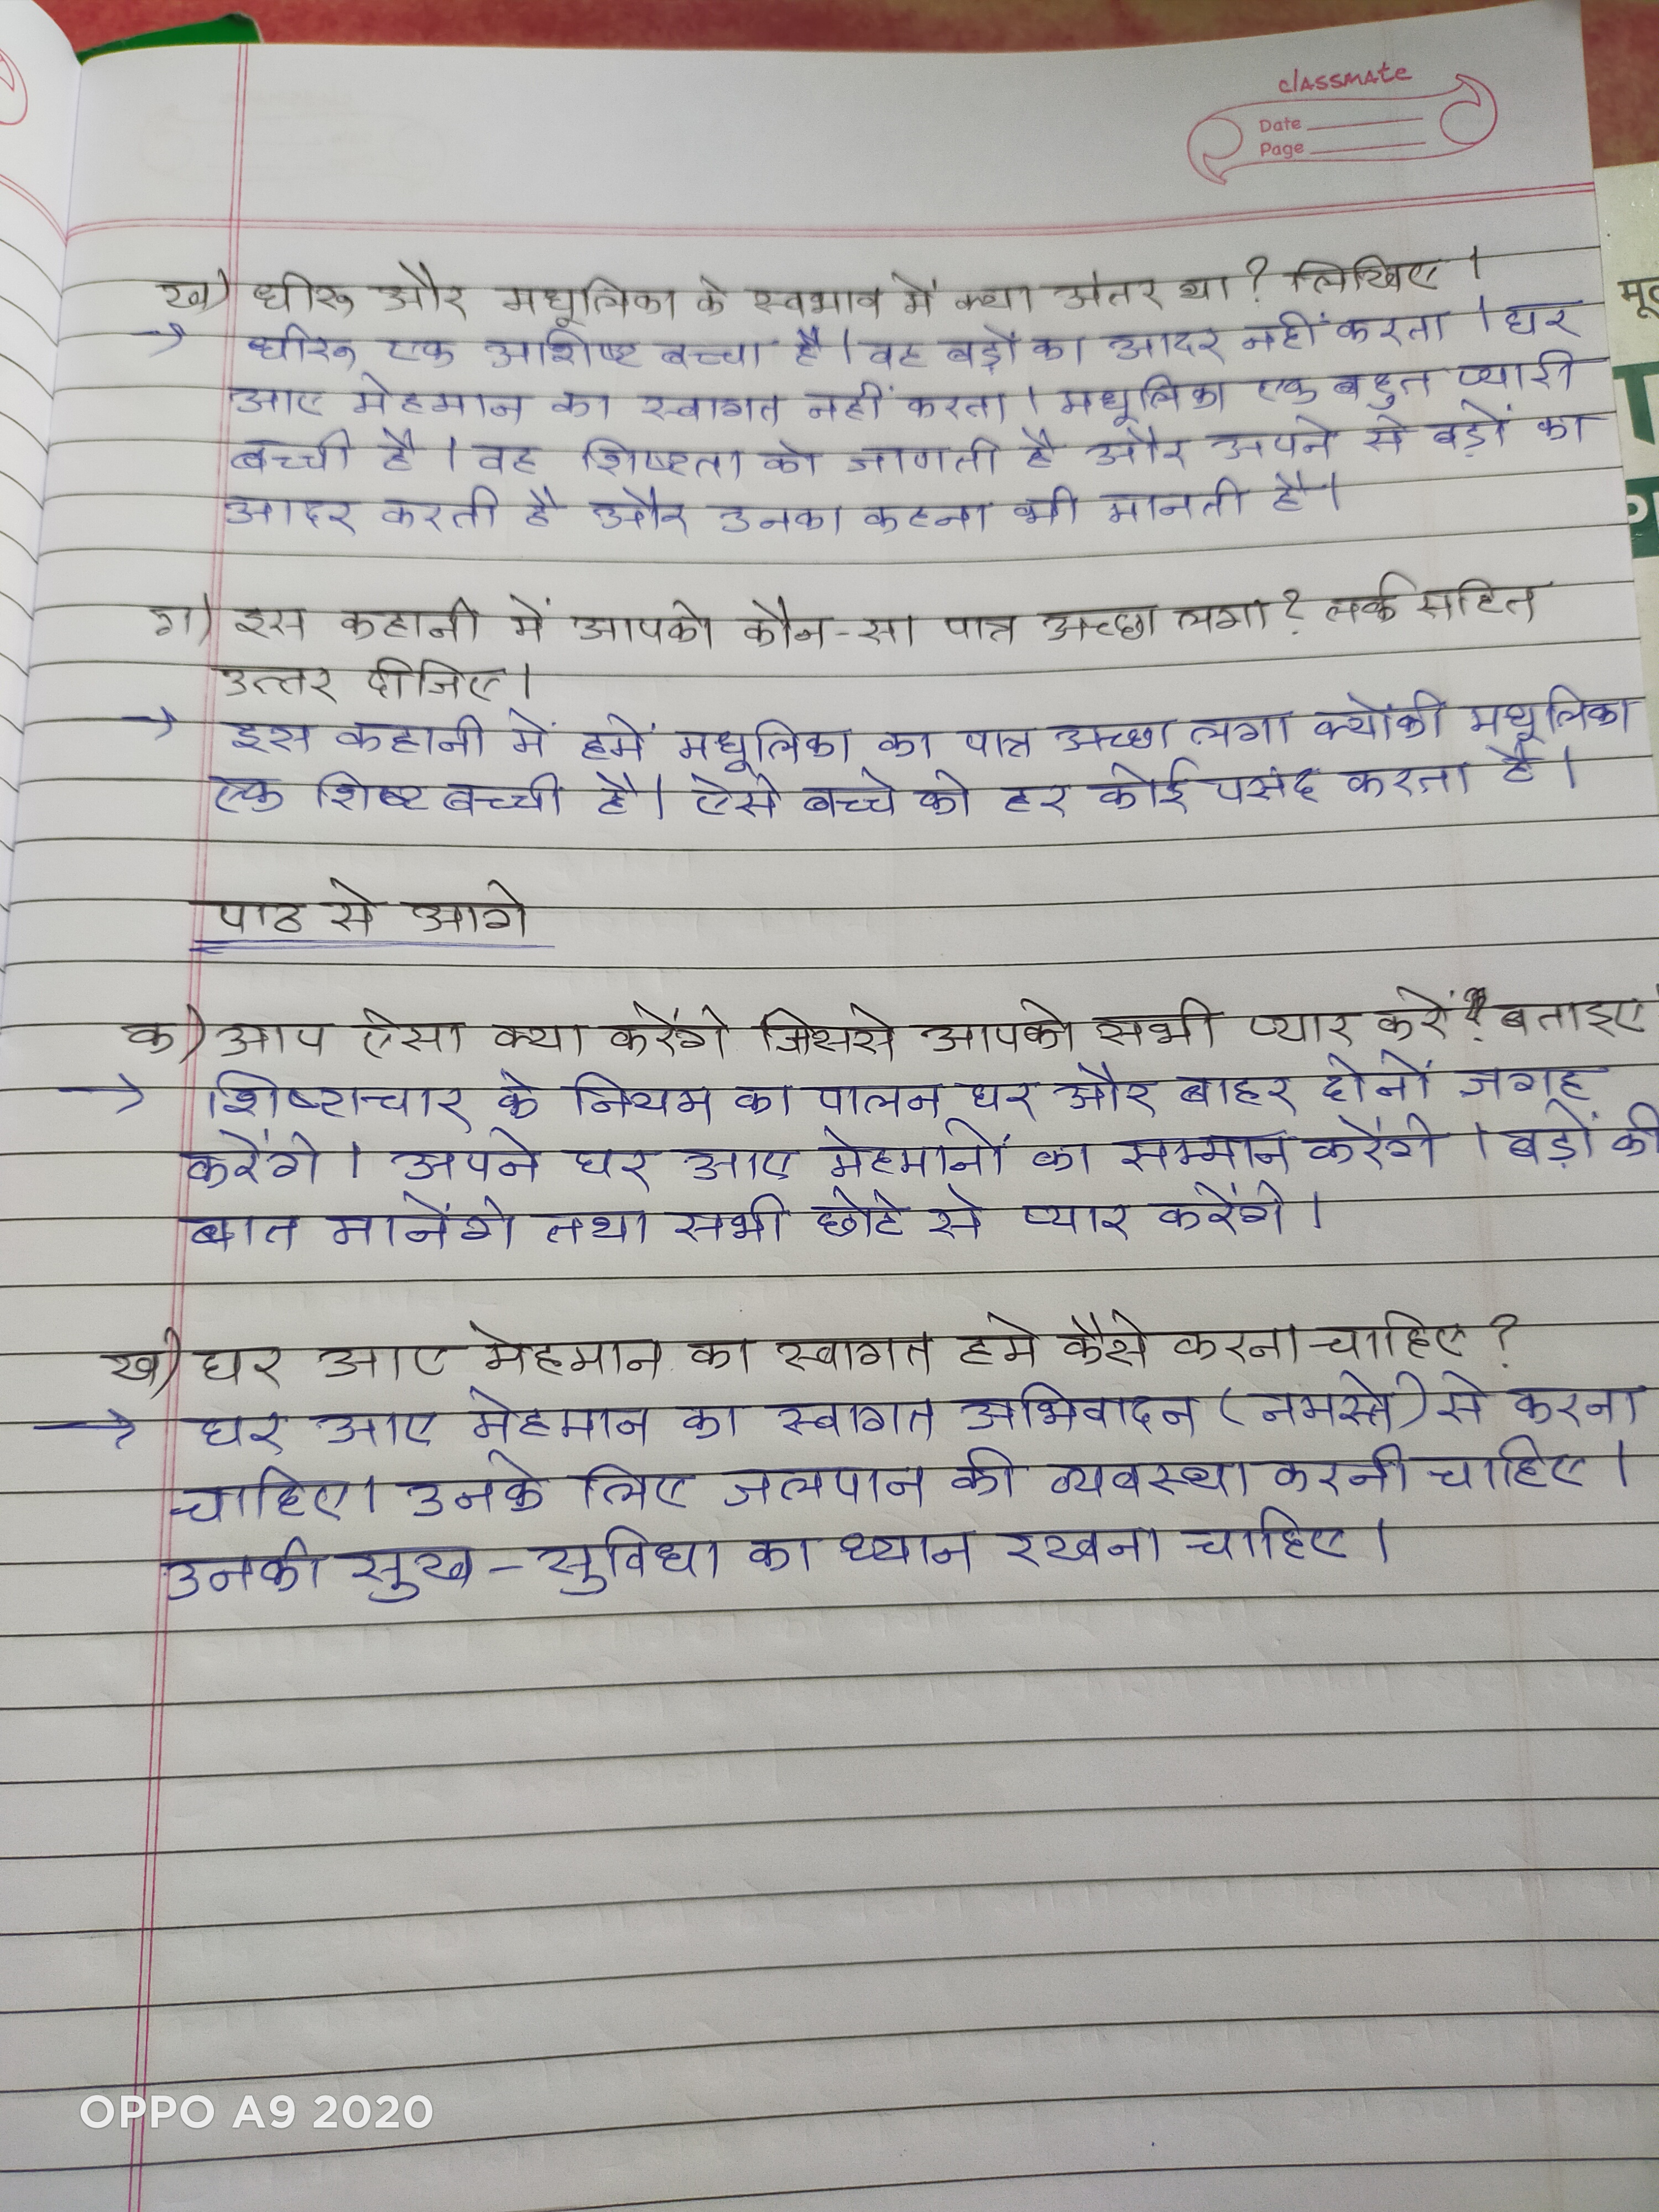 classmate
Date
Page
ख) धीरू और मधूलिका के स्वभाव में क्या अंतर था? लिखिए।
→ धीरू एक अशिष्ट बच्चा है। वह बड़ों का आदर नहीं करता। घर
आए मेहमान का स्वागत नहीं करता। मधूलिका एक बहुत प्यारी
बच्ची है। वह शिष्टता को जानती है और अपने से बड़ों का
आदर करती है और उनका कहना भी मानती है।
ग) इस कहानी में आपको कौन-सा पात्र अच्छा लगा? तर्क सहित
उत्तर दीजिए।
→ इस कहानी में हमें मधूलिका का पात्र अच्छा लगा क्योंकी मधूलिका
एक शिष्ट बच्ची है। ऐसे बच्चे को हर कोई पसंद करता है।
पाठ से आगे
क) आप ऐसा क्या करेंगे जिससे आपको सभी प्यार करें? बताइए
→ शिष्टाचार के नियम का पालन घर और बाहर दोनों जगह
करेंगे। अपने घर आए मेहमानों का सम्मान करेंगे। बड़ों की
बात मानेंगे तथा सभी छोटे से प्यार करेंगे।
ख) घर आए मेहमान का स्वागत हमे कैसे करना चाहिए?
→ घर आए मेहमान का स्वागत अभिवादन (नमस्ते) से करना
चाहिए। उनके लिए जलपान की व्यवस्था करनी चाहिए।
उनकी सुख-सुविधा का ध्यान रखना चाहिए।
OPPO A9 2020